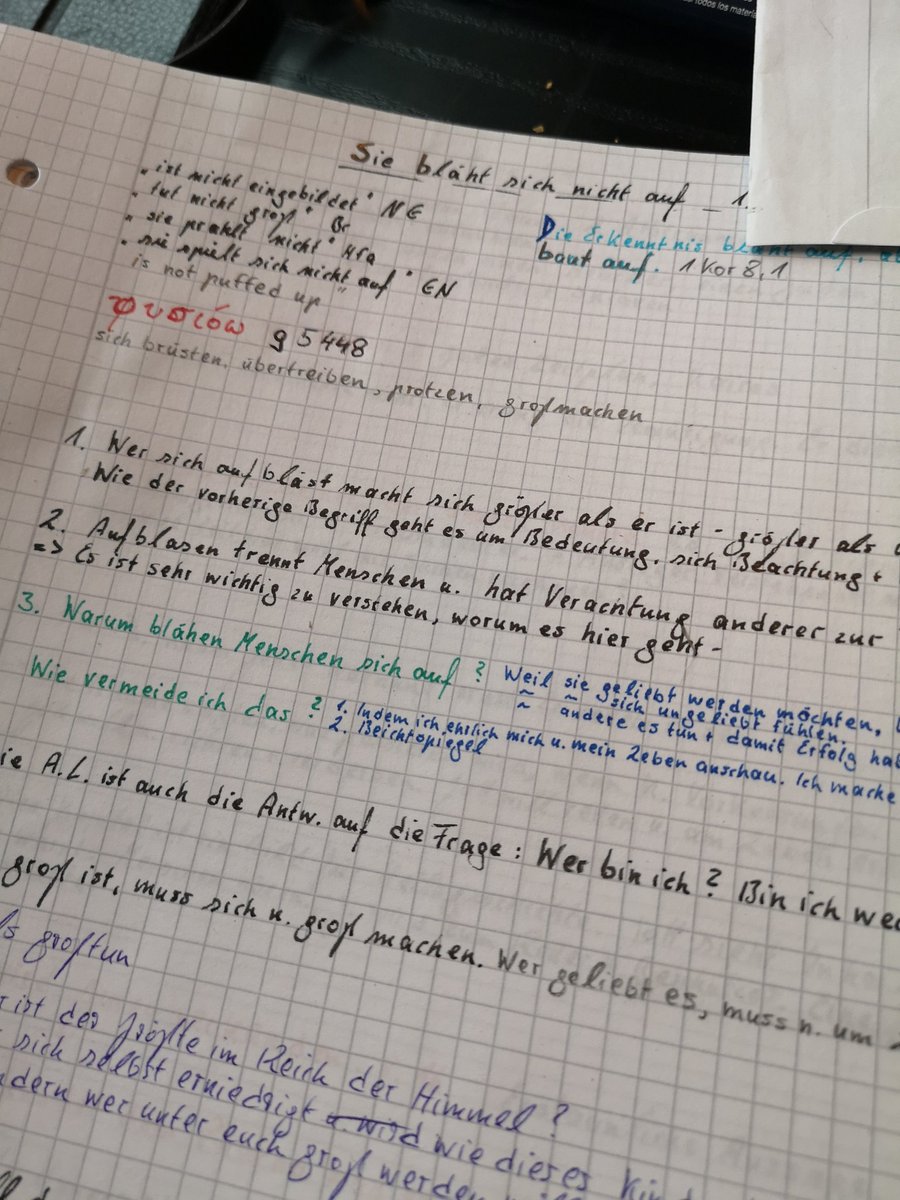 todos los
Sie bläht sich nicht auf – 1.
"ist nicht eingebildet" NE
"tut nicht groß" Br
"sie prahlt nicht" Hfa
"sie spielt sich nicht auf" EN
is not puffed up"
Die Erkenntnis bläht auf.
baut auf. 1 Kor 8,1
φυσιόω g 5448
sich brüsten, übertreiben, protzen, großmachen
1. Wer sich aufbläst macht sich größer als er ist – größer als
Wie der vorherige Begriff geht es um Bedeutung, sich Beachtung +
2. Aufblasen trennt Menschen u. hat Verachtung anderer zur
=> Es ist sehr wichtig zu verstehen, worum es hier geht –
3. Warum blähen Menschen sich auf? Weil sie geliebt werden möchten,
~ ~ sich ungeliebt fühlen.
~ andere es tun + damit Erfolg hab
Wie vermeide ich das? 1. Indem ich ehrlich mich u. mein Leben anschau. Ich mache
2. Beichtspiegel
ie A.L. ist auch die Antw. auf die Frage: Wer bin ich? Bin ich wer
groß ist, muss sich n. groß machen. Wer geliebt es, muss n. um
großtun
ist der größte im Reich der Himmel?
sich selbst erniedrigt wird wie dieses Kind
ndern wer unter euch groß werden